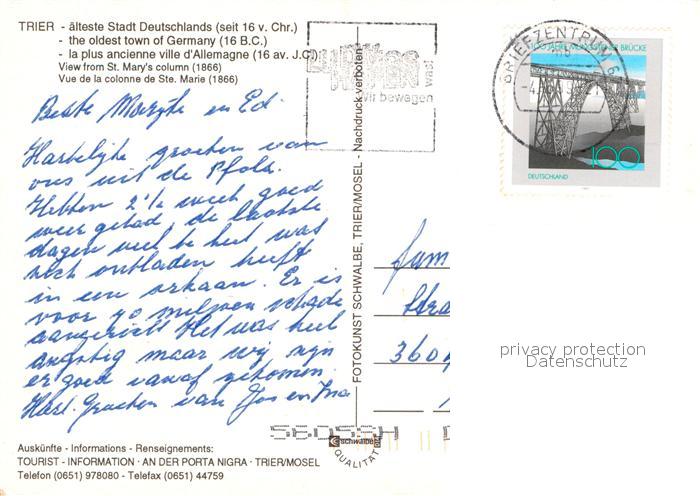 TRIER - älteste Stadt Deutschlands (seit 16 v. Chr.)
- the oldest town of Germany (16 B.C.)
- la plus ancienne ville d'Allemagne (16 av. J.C.)
View from St. Mary's column (1866)
Vue de la colonne de Ste. Marie (1866)
Beste en Ed.
Hartelijke groeten van
ons uit de Pfalz.
Hebben 2½ week goed
weer gehad de laatste
dagen veel te heet was
zich ontladen heeft
in een orkaan. Er is
voor 70 miljoen schade
aangericht Het was heel
angstig maar wij zijn
er goed vanaf gekomen.
Hart. Groeten van Jos en Ina
Auskünfte - Informations - Renseignements:
TOURIST - INFORMATION · AN DER PORTA NIGRA · TRIER/MOSEL
Telefon (0651) 978080 - Telefax (0651) 44759
FOTOKUNST SCHWALBE, TRIER/MOSEL - Nachdruck verboten
schwalbe
QUALITÄT
was!
Wir bewegen
BRIEFZENTRUM
100 JAHRE MÜNGSTENER BRÜCKE
100
DEUTSCHLAND
Fam
Stra
360
privacy protection
Datenschutz